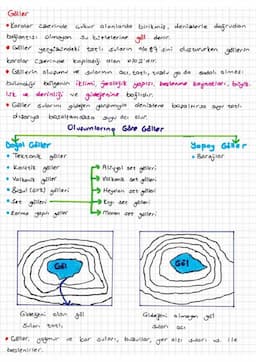 Göller
• Karalar üzerinde çukur alanlarda birikmiş, denizlerle doğrudan
bağlantısı olmayan su kütlelerine göl denir.
• Göller yeryüzündeki tatlı suların sini oluştururken göllerin
karalar üzerinde kapladığı alan
• Göllerin oluşumu ve sularının acı, tatlı, tuzlu ya da sodalı olması
bulunduğu bölgenin iklimi, jeolojik yapısı, beslenme kaynakları, büyük-
lük ve derinliği ve gideğenine bağlıdır.
• Göller sularını gideğen yardımıyla denizlere boşaltırsa suyu tatlı
dışarıya boşaltamazsa suyu acı olur.
Oluşumlarına Göre Göller
Doğal Göller
Yapay Göller
• Tektonik göller
• Barajlar
• Karstik göller
Alüvyal set gölleri
• Volkanik göller
Volkanik set gölleri
• Buzul (sirk) gölleri
Heyelan set gölleri
• Set gölleri
Kıyı set gölleri
• Karma yapılı göller
Moren set gölleri
Göl
Göl
Gideğeni olan göl
suları tatlı.
Gideğeni olmayan göl
suları acı
• Göller, yağmur ve kar suları, buzullar, yer altı suları vs. ile
beslenirler.